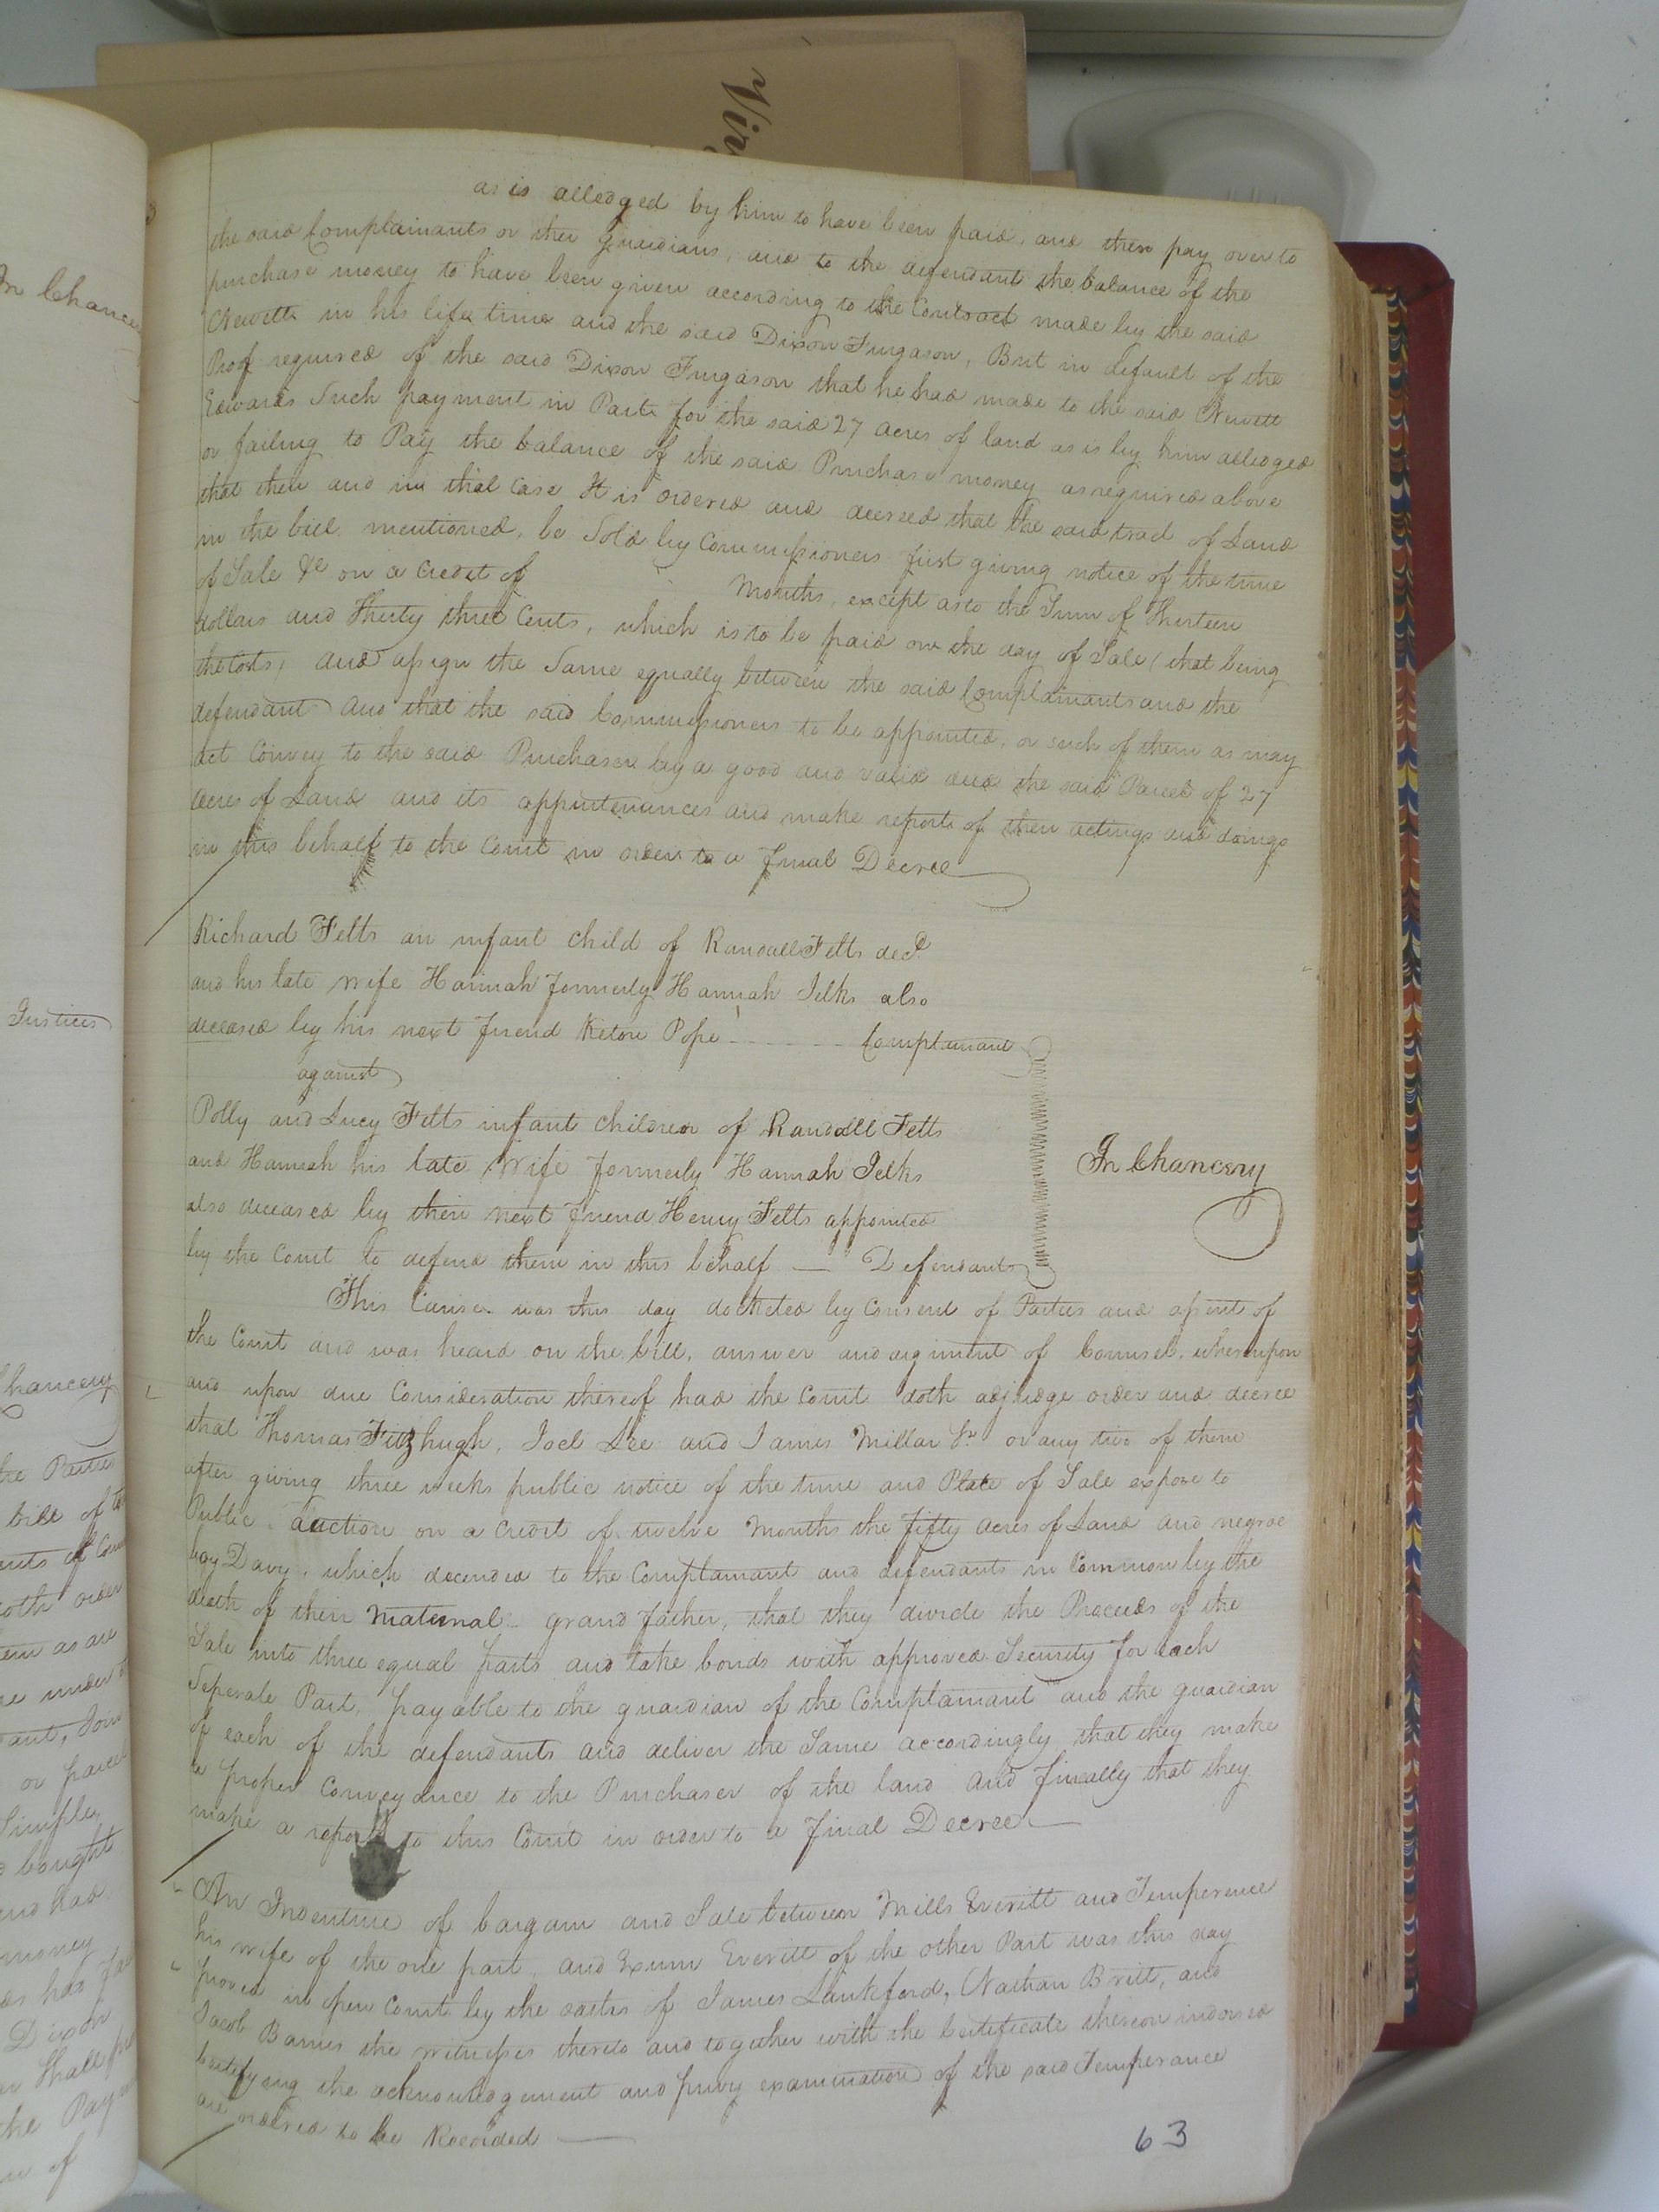 Vir
as is alledged by him to have been paid, and then pay over to
the said Complainants or their guardians, and to the defendant the balance of the
purchase money to have been given according to the Contract made by the said
Newett in his life time and the said Dixon Furgason, But in default of the
Proof required of the said Dixon Furgason that he had made to the said Newett
Edwards Such payment in Part for the said 27 acres of land as is by him alledged
or failing to Pay the balance of the said Purchase money as required above
that then and in that Case It is ordered and decreed that the said tract of Land
in the bill mentioned, be Sold by Commissioners first giving notice of the time
of Sale &c on a Credit of Months, except as to the Sum of Thirteen
dollars and Thirty three Cents, which is to be paid on the day of Sale (that being
the Costs) and assign the Same equally between the said Complainants and the
defendant and that the said Commissioners to be appointed, or such of them as may
act Convey to the said Purchaser by a good and valid deed the said Parcel of 27
acres of Land and its appurtenances and make report of their actings and doings
in this behalf to the Court in order to a final Decree
Richard Felts an infant child of Randall Felts decd.
and his late wife Hannah formerly Hannah Jelks also
deceased by his next friend Keton Pope Complainant
against
Polly and Lucy Felts infant Children of Randall Felts
and Hannah his late Wife formerly Hannah Jelks
also deceased by their next friend Henry Felts appointed
by the Court to defend them in this behalf — Defendants
In Chancery
This Cause was this day docketed by Consent of Parties and assent of
the Court and was heard on the bill, answer and argument of Counsel, whereupon
and upon due Consideration thereof had the Court doth adjudge order and decree
that Thomas Fitzhugh, Joel Lee and James Millar Jr. or any two of them
after giving three weeks public notice of the time and Place of Sale expose to
Public auction on a Credit of twelve Months the fifty acres of Land and negroe
boy Davy, which decended to the Complainant and defendants in Common by the
death of their Maternal grand father, that they divide the Proceeds of the
Sale into three equal parts and take bonds with approved Security for each
Seperate Part, payable to the guardian of the Complainant and the guardian
of each of the defendants and deliver the Same accordingly that they make
a proper Conveyance to the Purchaser of the land and finally that they
make a report to this Court in order to a final Decree
An Indenture of bargain and Sale between Mills Everitt and Temperence
his wife of the one part, and Exum Everitt of the other Part was this day
proved in open Court by the oaths of James Lankford, Nathan Britt, and
Jacob Barnes the witnesses thereto and together with the Certificate thereon indorsed
Certifying the acknowledgement and privy examination of the said Temperance
are ordered to be Recorded
63
In Chancery
Justices
Chancery
the Parties
bill of
doth order
as are
under
or parcel
Simple,
bought
and had
money
has
Dixon
Shall
the Pay
of